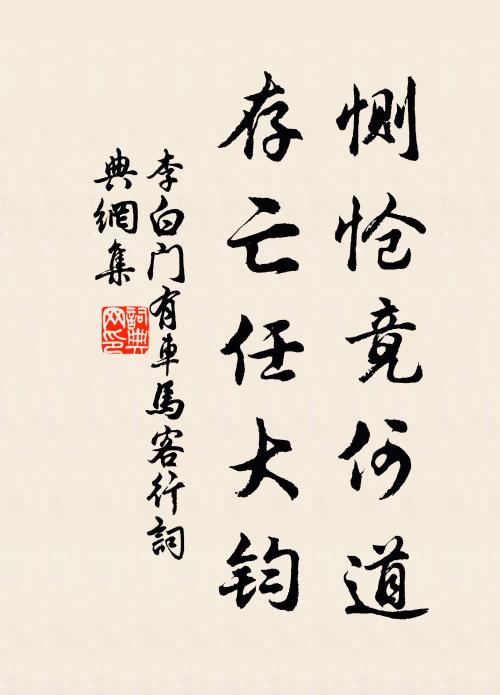 恻怆竟何道
存亡任大钧
李白门有車馬客行詞
典網集
詞典网印